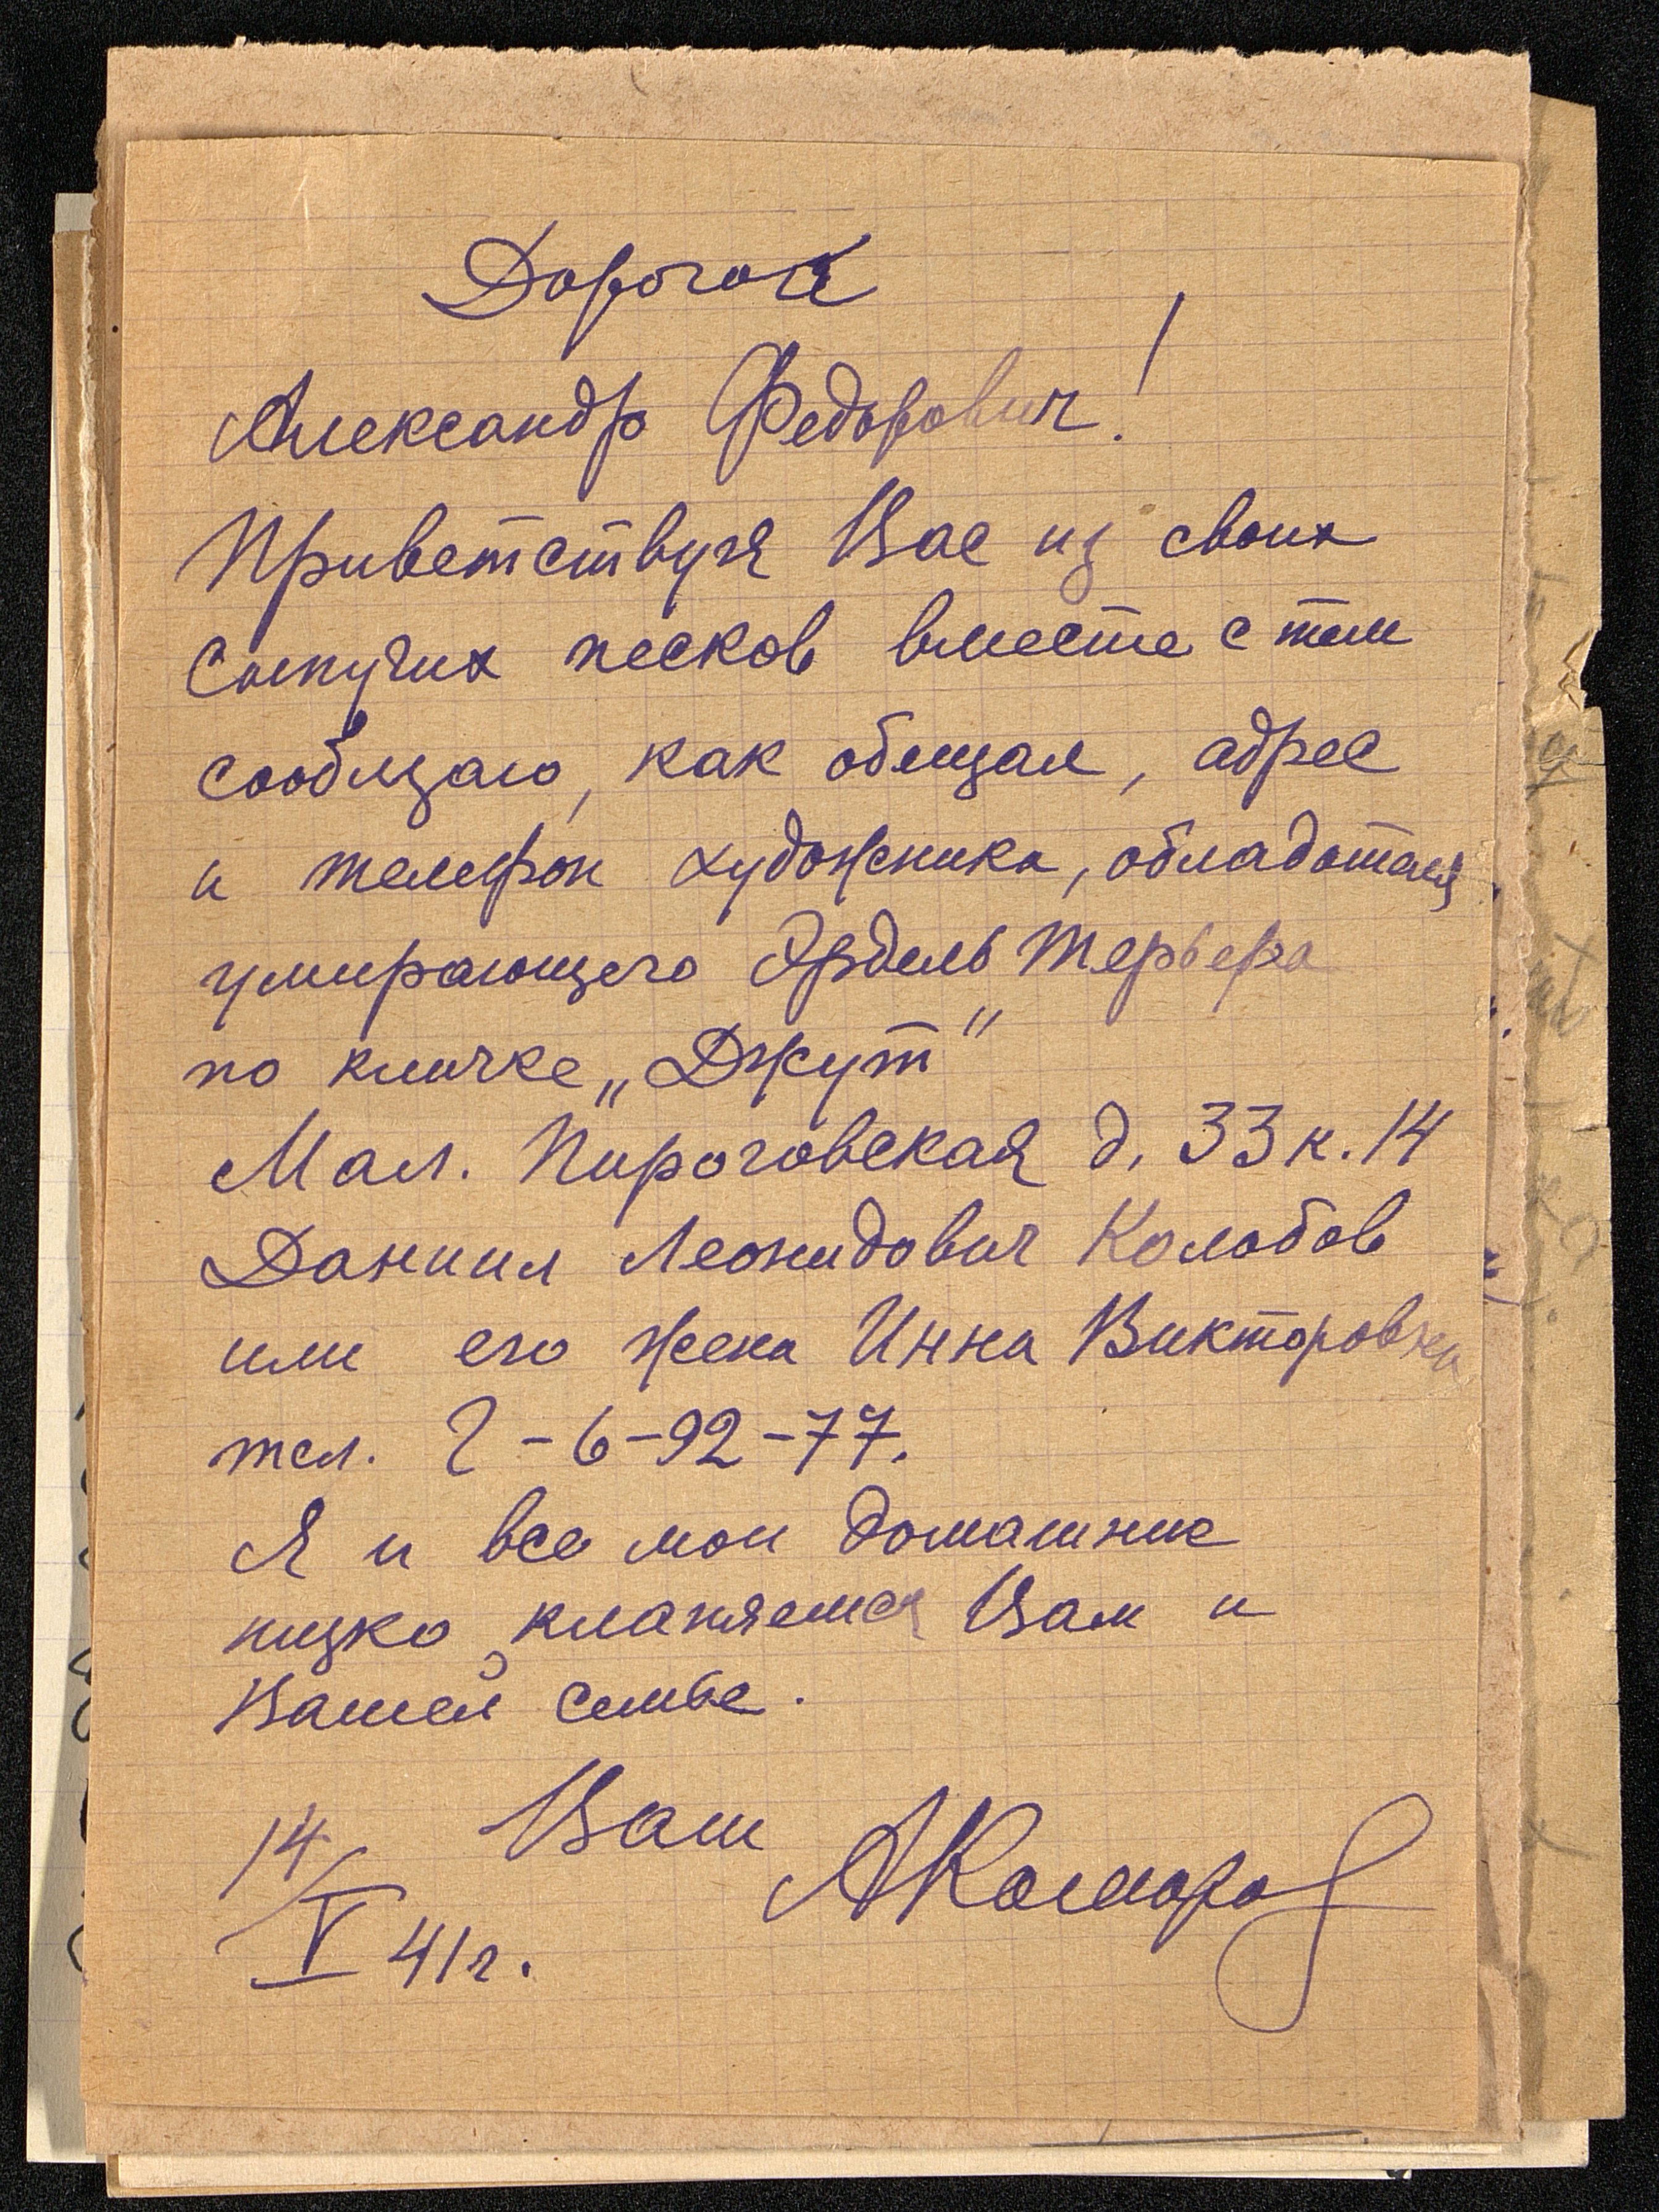 Дорогой
Александр Федорович!
Приветствуя Вас из своих
сыпучих песков вместе с тем
сообщаю, как обещал, адрес
и телефон художника, обладателя
умирающего Эрдель Терьера
по кличке „Джут"
Мал. Пироговская д. 33 к. 14
Даниил Леонидович Колобов
или его жена Инна Викторовна
тел. Г-6-92-77.
Я и все мои домашние
низко кланяемся Вам и
Вашей семье.
Ваш АКомаров
14/V 41г.